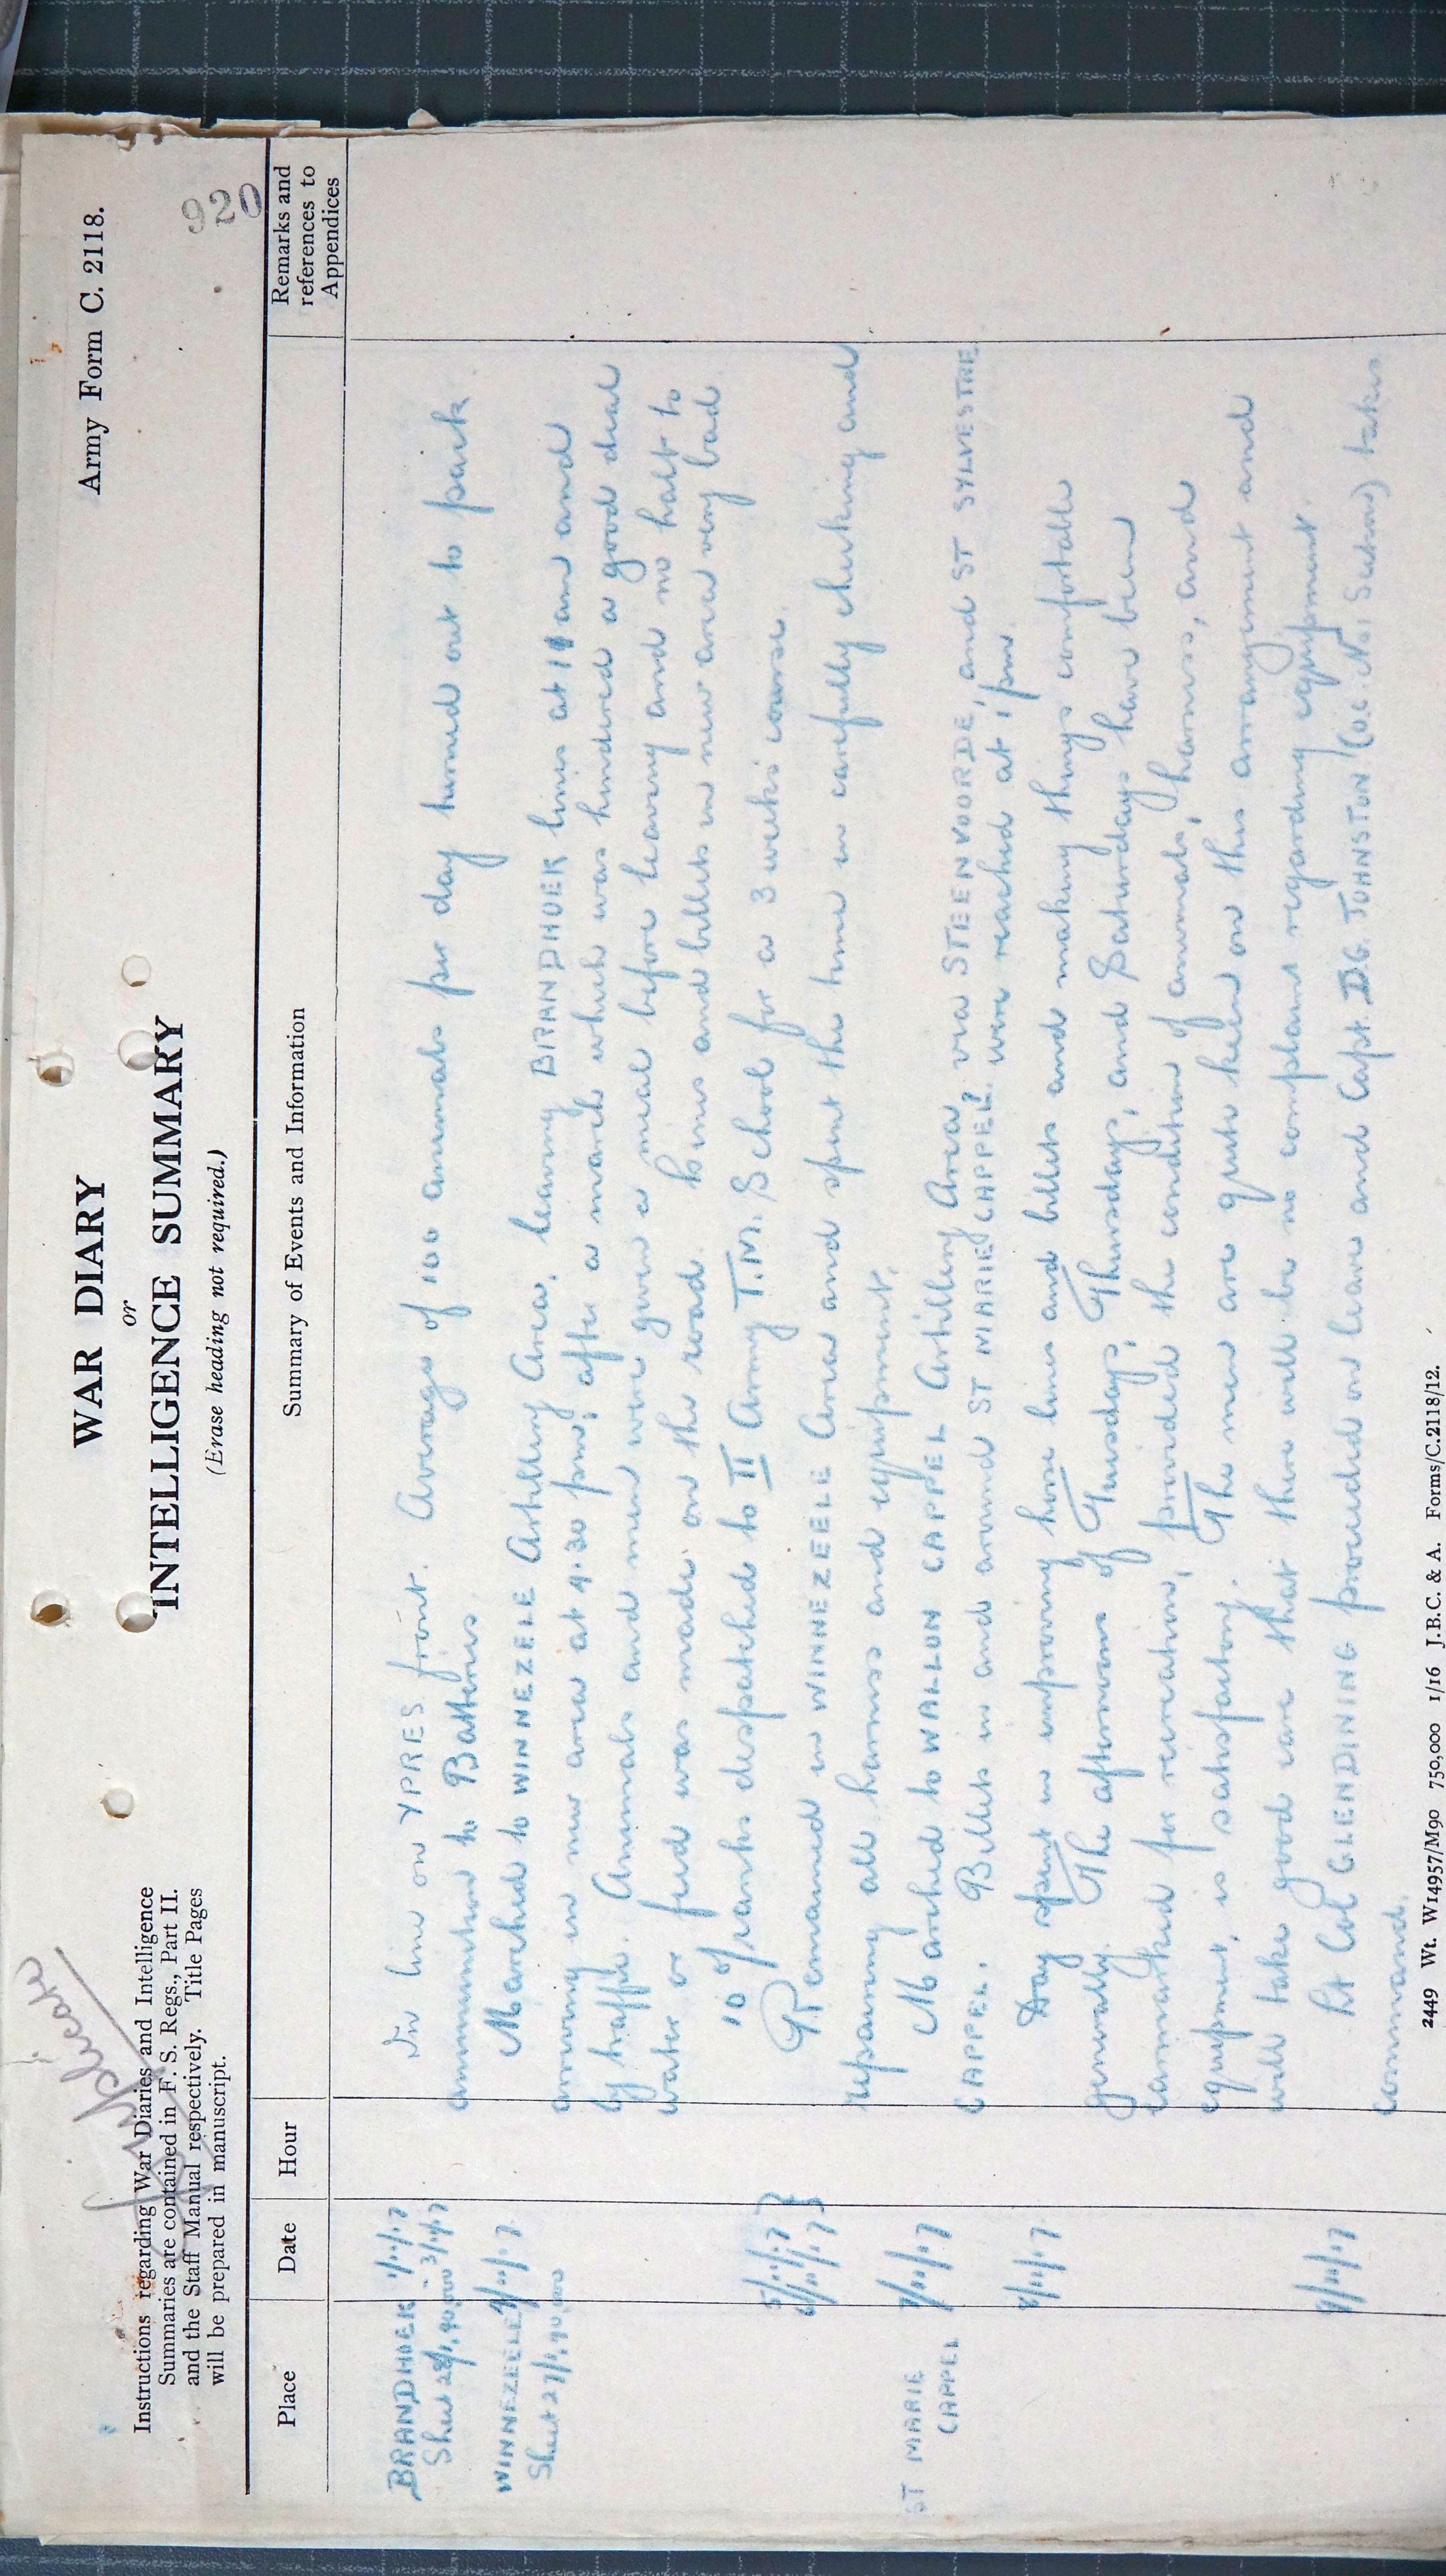 Duplicate
Army Form C. 2118.
WAR DIARY
or
INTELLIGENCE SUMMARY
(Erase heading not required.)
920
Instructions regarding War Diaries and Intelligence
Summaries are contained in F. S. Regs., Part II.
and the Staff Manual respectively. Title Pages
will be prepared in manuscript.
Place Date Hour Summary of Events and Information Remarks and references to Appendices
BRANDHOEK 1/11/17 In line on YPRES front. Average of 100 animals per day turned out to pack
Sheet 28 1/40,000 3/11/17 ammunition to Batteries
WINNEZEELE 4/11/17 Marched to WINNEZELE Artillery Area, leaving BRANDHOEK lines at am and
Sheet 27 1/40,000 arriving in new area at 4.30 pm, after a march which was hindered a good deal
by traffic. Animals and men were given a meal before leaving and no halt to
water or feed was made on the road. Lines and billets in new area very bad
10 of ranks despatched to II Army T.M. School for a 3 weeks course.
5/11/17 6/11/17 } Remained in WINNEZEELE Area and spent the time in carefully checking and
repairing all harness and equipment.
ST MARIE CAPPEL 7/11/17 Marched to WALLON CAPPEL Artillery Area via STEENVOORDE, and ST SYLVESTRE
CAPPEL. Billets in and around ST MARIE CAPPEL were reached at 1 pm.
8/11/17 Day spent in improving horse lines and billets and making things comfortable
generally. The afternoons of Tuesdays, Thursdays, and Saturdays have been
earmarked for recreation, provided the condition of animals, harness, and
equipment, is satisfactory. The men are quite keen on this arrangement and
will take good care that there will be no complaint regarding equipment.
9/11/17 Lt Col GLENDINING proceeded on leave and Capt. D.G. JOHNSTON (O.C. No. 1 Section) takes
command.
2449 Wt. W14957/M90 750,000 1/16 J.B.C. & A. Forms/C.2118/12.